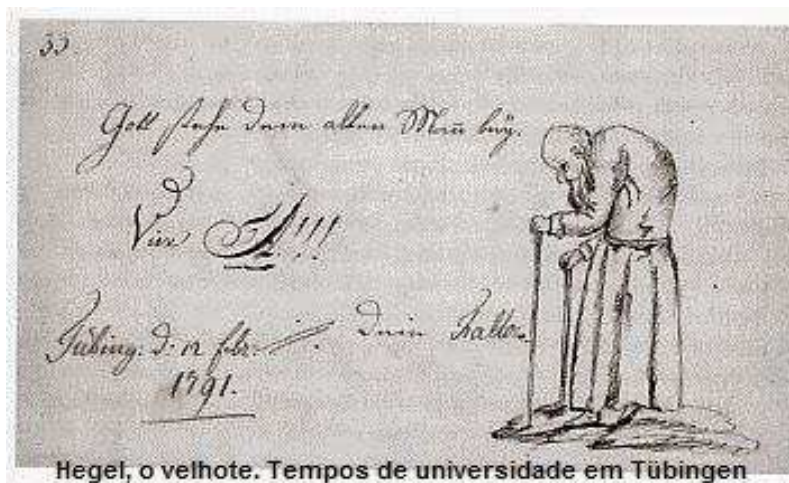 33.
Gott stehe dem alten Man̄ bey.
Vive A!!!
Tübing. d. 12 febr. Dein Fallot.
1791.
Hegel, o velhote. Tempos de universidade em Tübingen